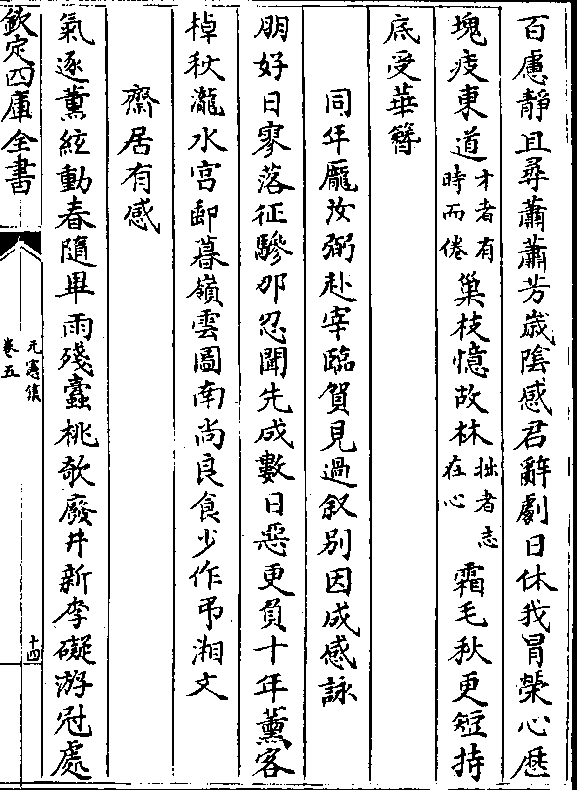 百慮静且尋蕭蕭芳歲陰感君辭劇日休我冒榮心歷
塊疲東道才者有時而倦巢枝憶故林拙者志在心霜毛秋更短持
底受華簪
同年龎汝弼赴宰臨賀見過叙别因成感詠
朋好日寥落征驂那忍聞先成數日惡更負十年薰客
棹秋瀧水宫郵暮嶺雲圖南尚良食少作弔湘文
齋居有感
氣逐薰絃動春隨畢雨殘蠧桃欹廢井新李礙游冠處
欽定四庫全書
元憲集
卷五
十四